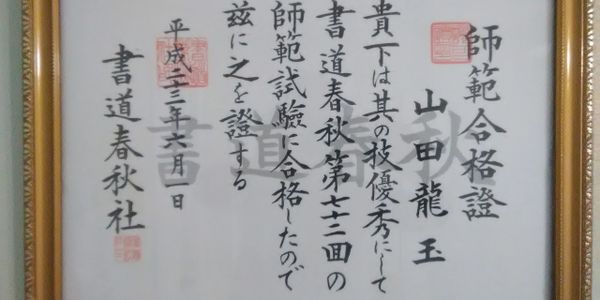 師範合格證
山田龍玉
貴下は其の技優秀にして
書道春秋第七十二回の
師範試驗に合格したので
茲に之を證する
平成二十三年六月一日
書道春秋社
書道春秋